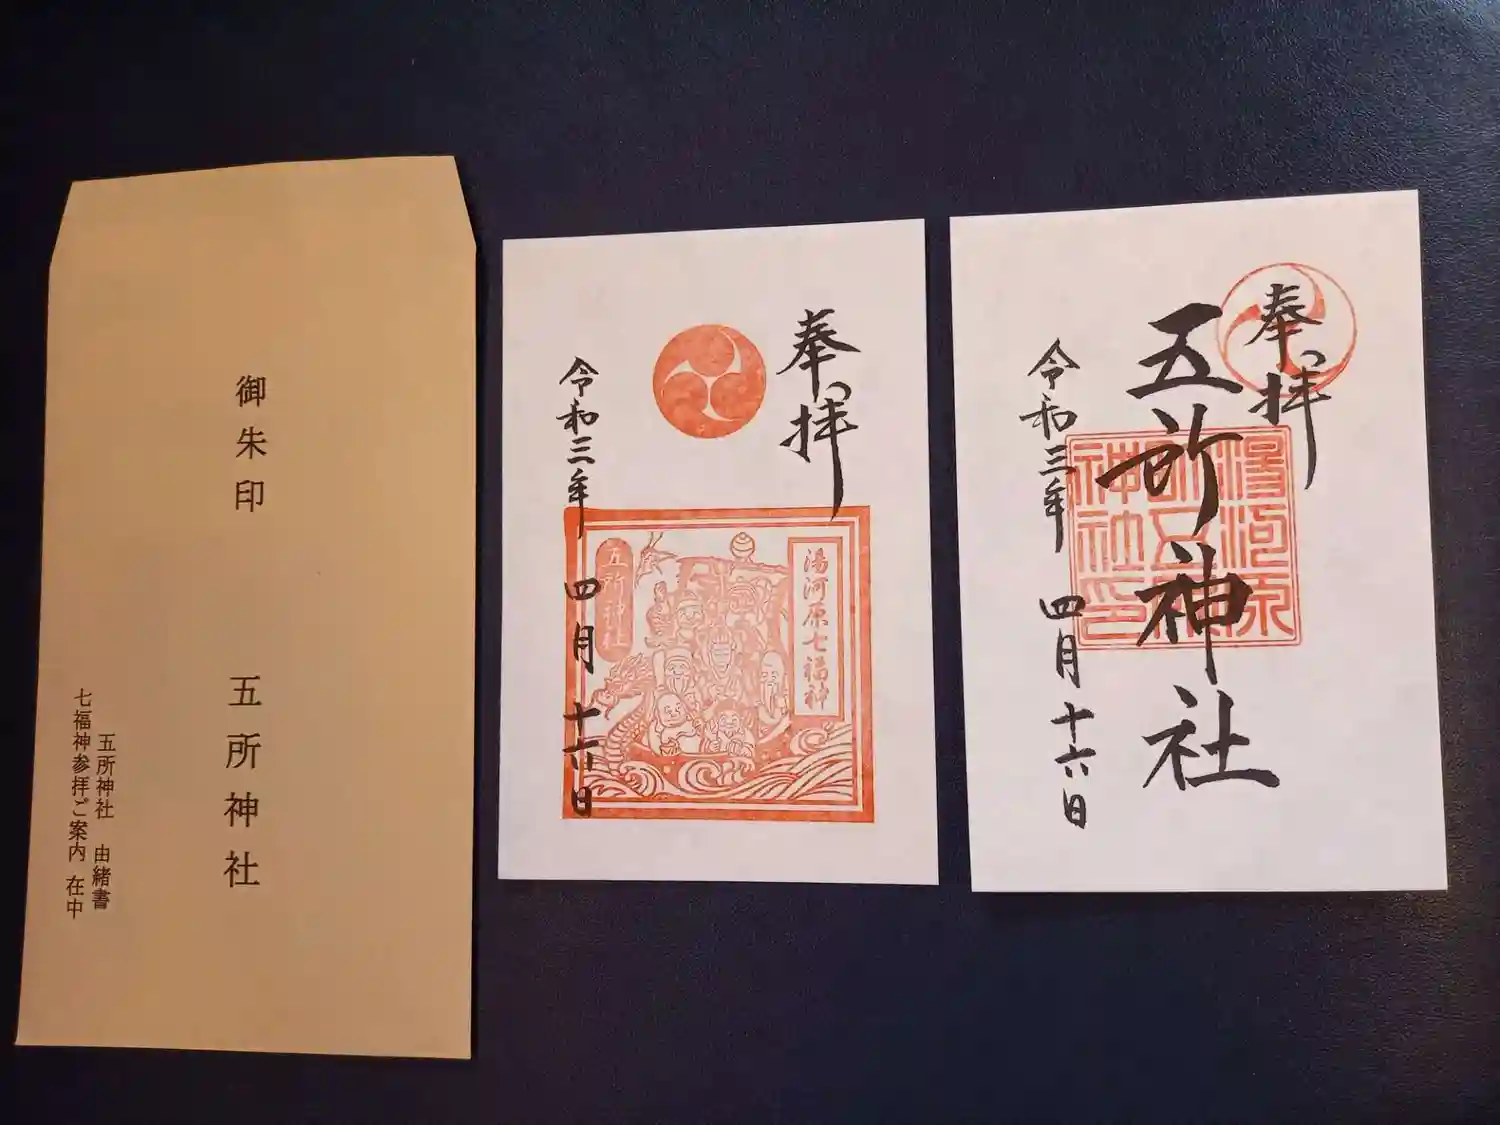 御朱印 五所神社
五所神社 由緒書
七福神参拝ご案内 在中
奉拝
湯河原七福神
五所神社
令和三年 四月 十六日
奉拝
五所神社
湯河原
神社印
令和三年 四月 十六日